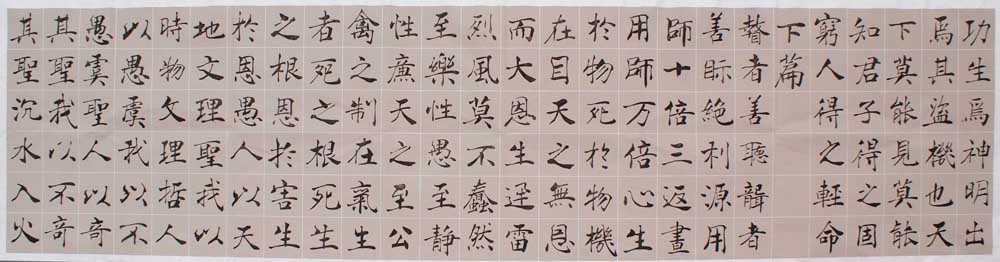 功生焉神明出
焉其盜機也天
下莫能見莫能
知君子得之固
窮人得之輕命
下篇
瞽者善聽聾者
善眎絕利源用
師十倍三返晝
用師万倍心生
於物死於物機
在目天之無恩
而大恩生迅雷
烈風莫不蠢然
至樂性愚至靜
性廉天之至公
禽之制在氣生
者死之根死生
之根恩於害生
於恩愚人以天
地文理聖我以
時物文理哲人
以愚虞我以不
愚虞聖人以奇
其聖我以不奇
其聖沉水入火